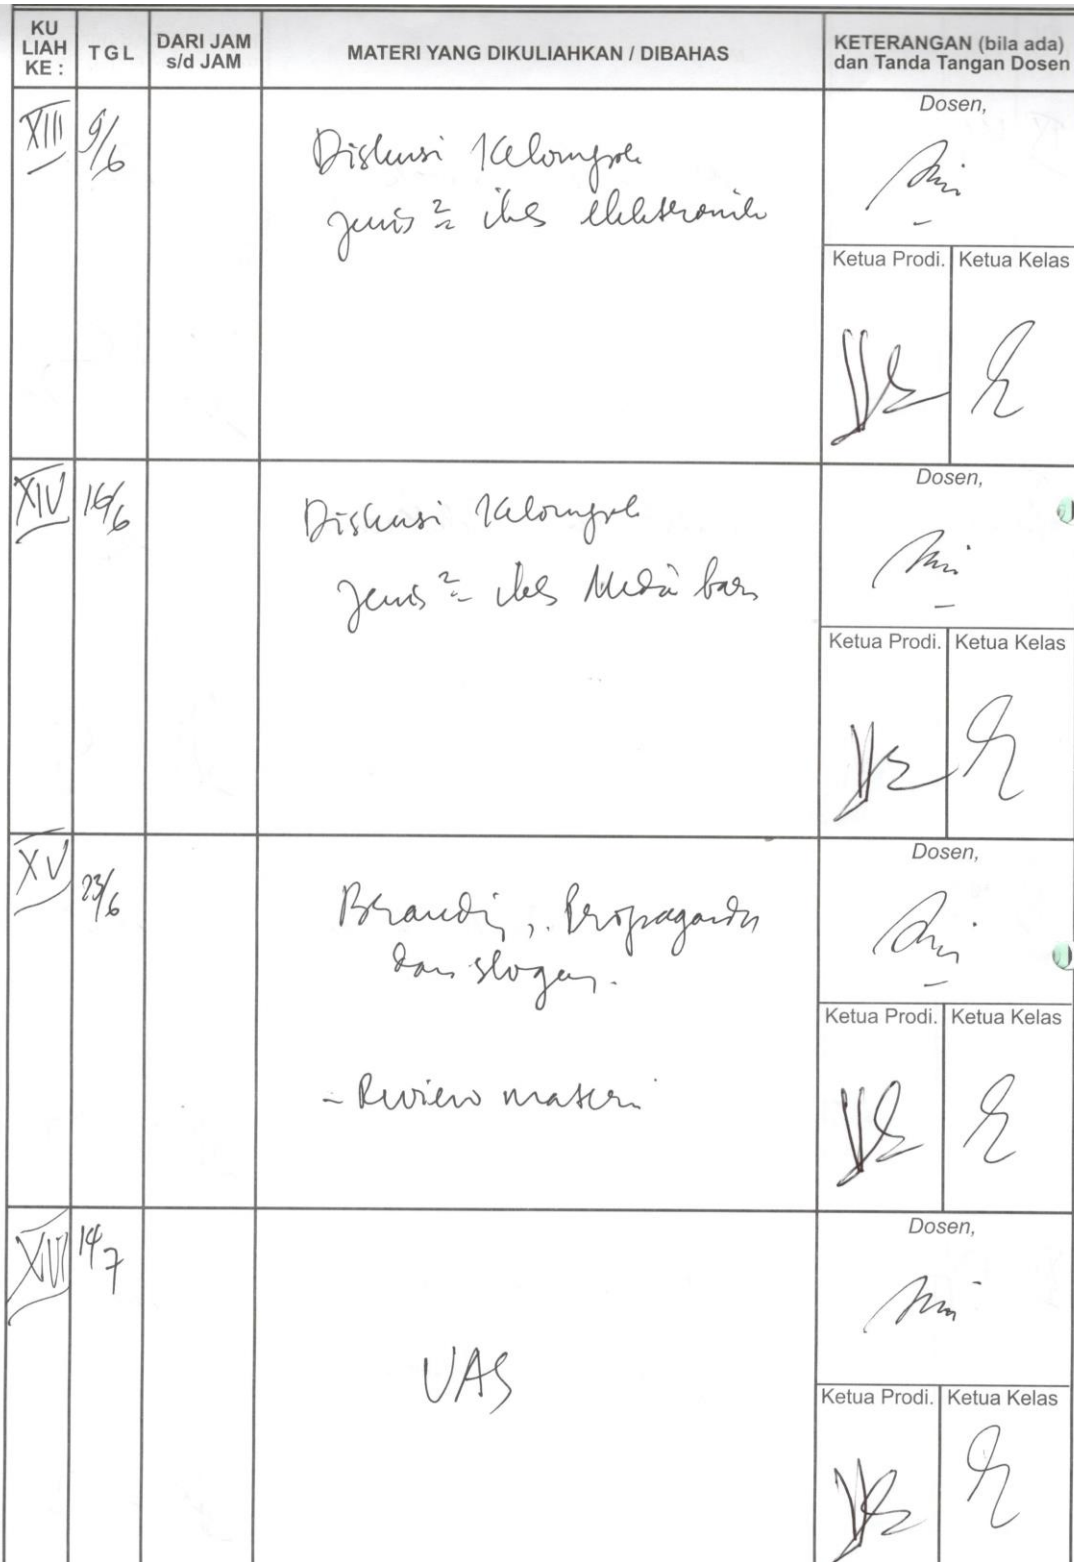 KU LIAH KE :
TGL
DARI JAM s/d JAM
MATERI YANG DIKULIAHKAN / DIBAHAS
KETERANGAN (bila ada) dan Tanda Tangan Dosen
XIII
9/6
Diskusi Kelompok
jenis2 ikl elektronik
Dosen,
Ketua Prodi.
Ketua Kelas
XIV
16/6
Diskusi Kelompok
Jenis2 Media baru
Dosen,
Ketua Prodi.
Ketua Kelas
XV
23/6
Branding, Propaganda
dan slogan.
- Review materi
Dosen,
Ketua Prodi.
Ketua Kelas
XVI
14/7
UAS
Dosen,
Ketua Prodi.
Ketua Kelas